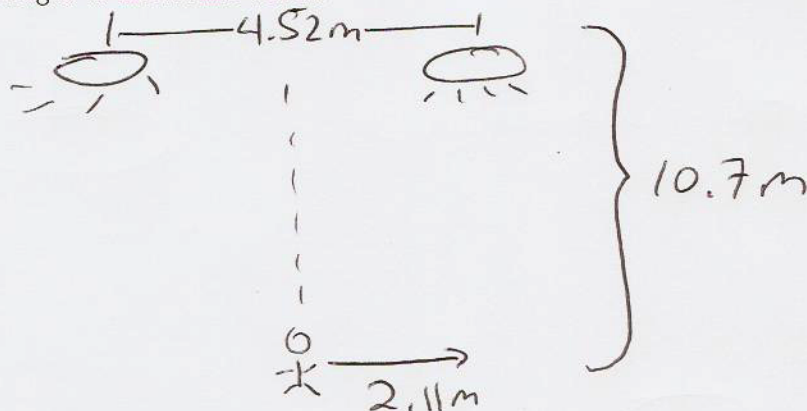 4.52m
10.7m
2.11m